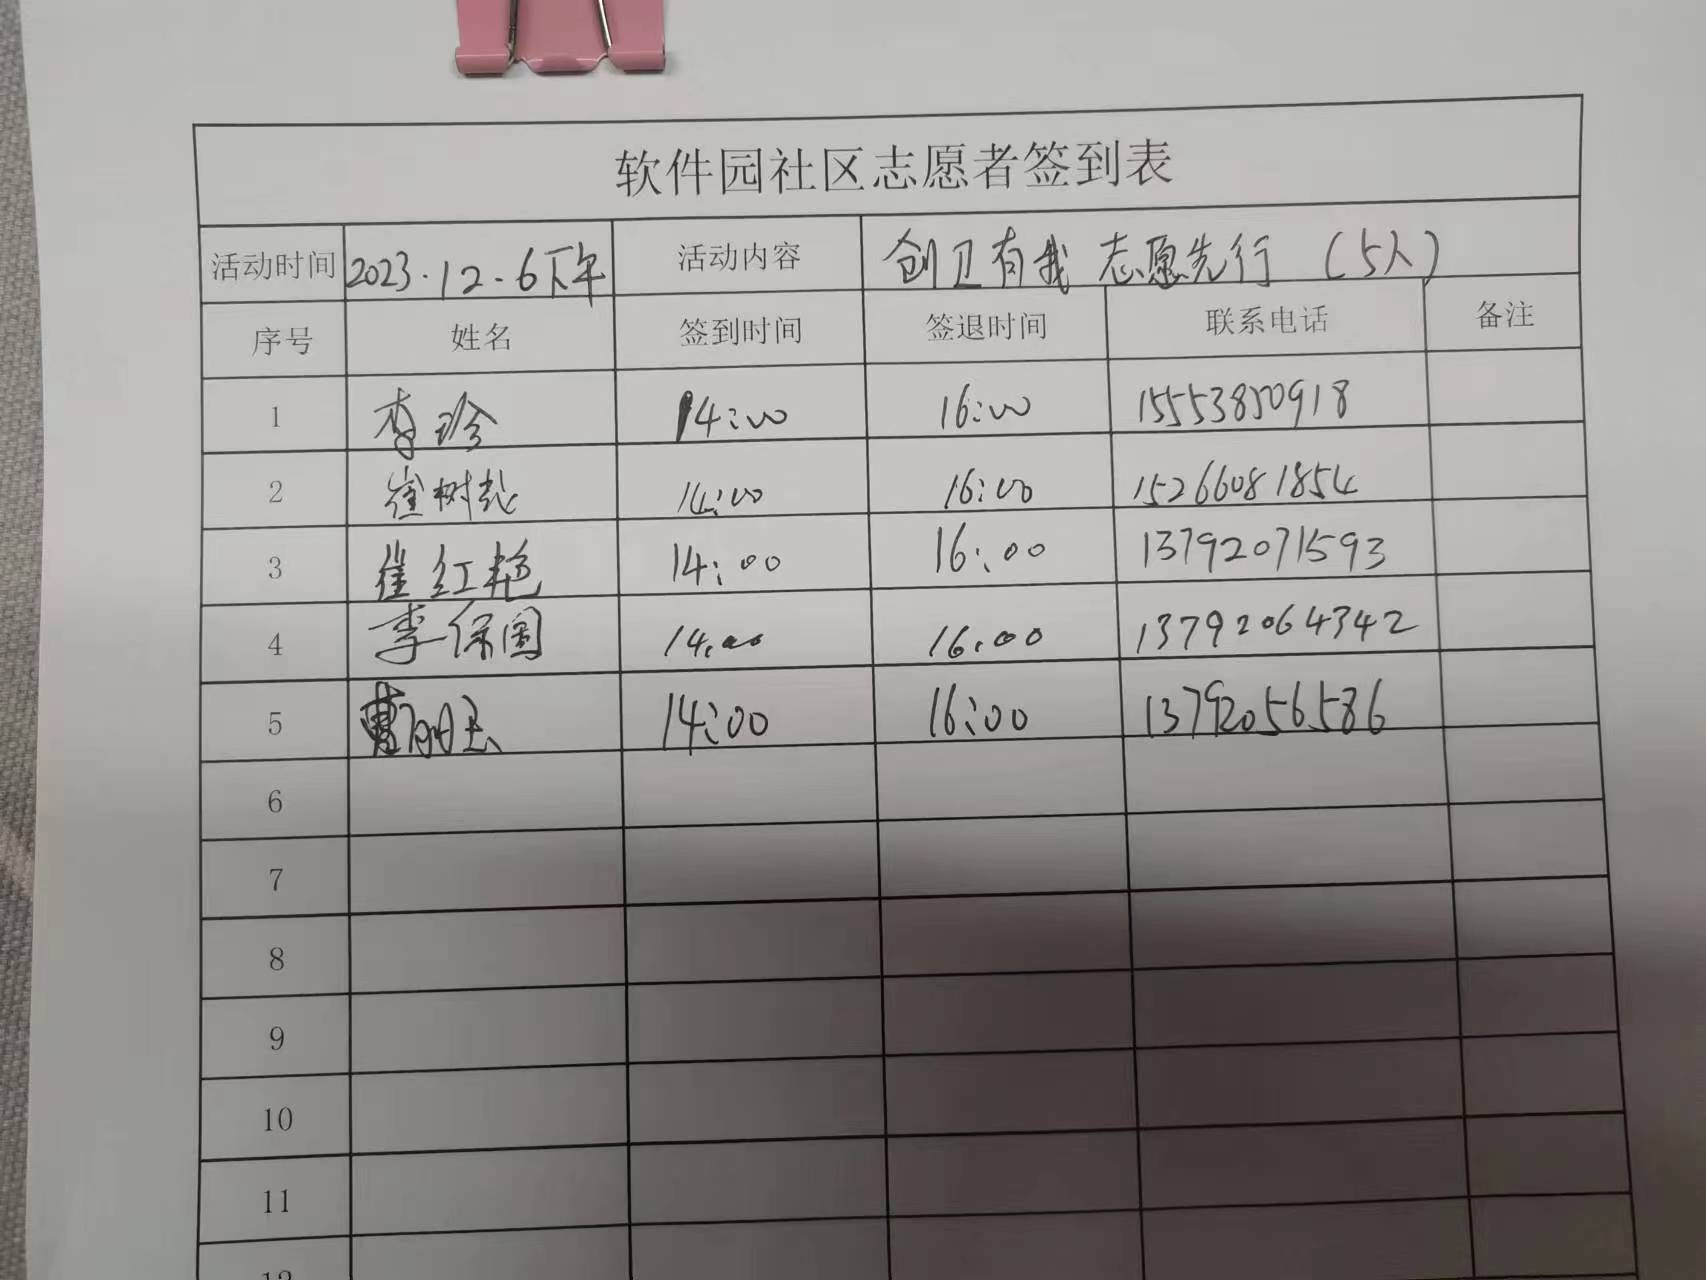 软件园社区志愿者签到表
活动时间 2023.12.6下午 活动内容 创卫有我 志愿先行 (5人)
序号 姓名 签到时间 签退时间 联系电话 备注
1 李珍 14:00 16:00 15553850918
2 崔树 14:00 16:00 15266081854
3 崔红艳 14:00 16:00 13792071593
4 李保国 14.00 16.00 13792064342
5 曹丽玉 14:00 16:00 13792056586
6
7
8
9
10
11
12